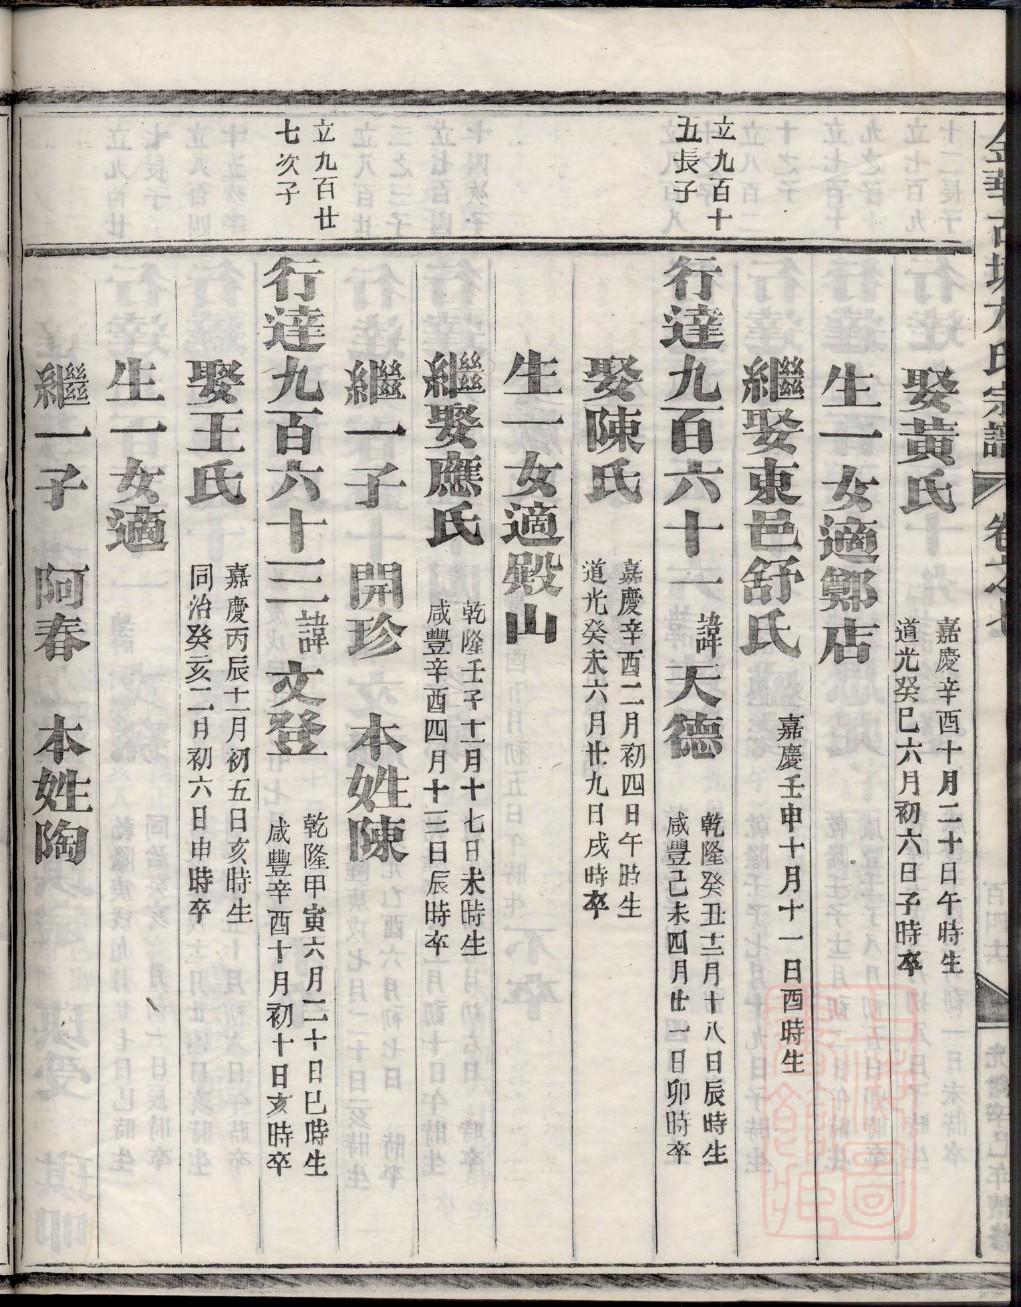 娶黃氏
嘉慶辛酉十月二十日午時生
道光癸巳六月初六日子時卒
生一女適鄭店
繼娶東邑舒氏
嘉慶壬申十月十一日酉時生
立九百十
五長子
行達九百六十一諱天德
乾隆癸丑十二月十八日辰時生
咸豐己未四月廿一日卯時卒
娶陳氏
嘉慶辛酉二月初四日午時生
道光癸未六月廿九日戌時卒
生一女適殿山
繼娶應氏
乾隆壬子十一月十七日未時生
咸豐辛酉四月十三日辰時卒
繼一子 開珍 本姓陳
立九百廿
七次子
行達九百六十三諱文登
乾隆甲寅六月二十日巳時生
咸豐辛酉十月初十日亥時卒
娶王氏
嘉慶丙辰十一月初五日亥時生
同治癸亥二月初六日申時卒
生一女適
繼一子 阿春 本姓陶